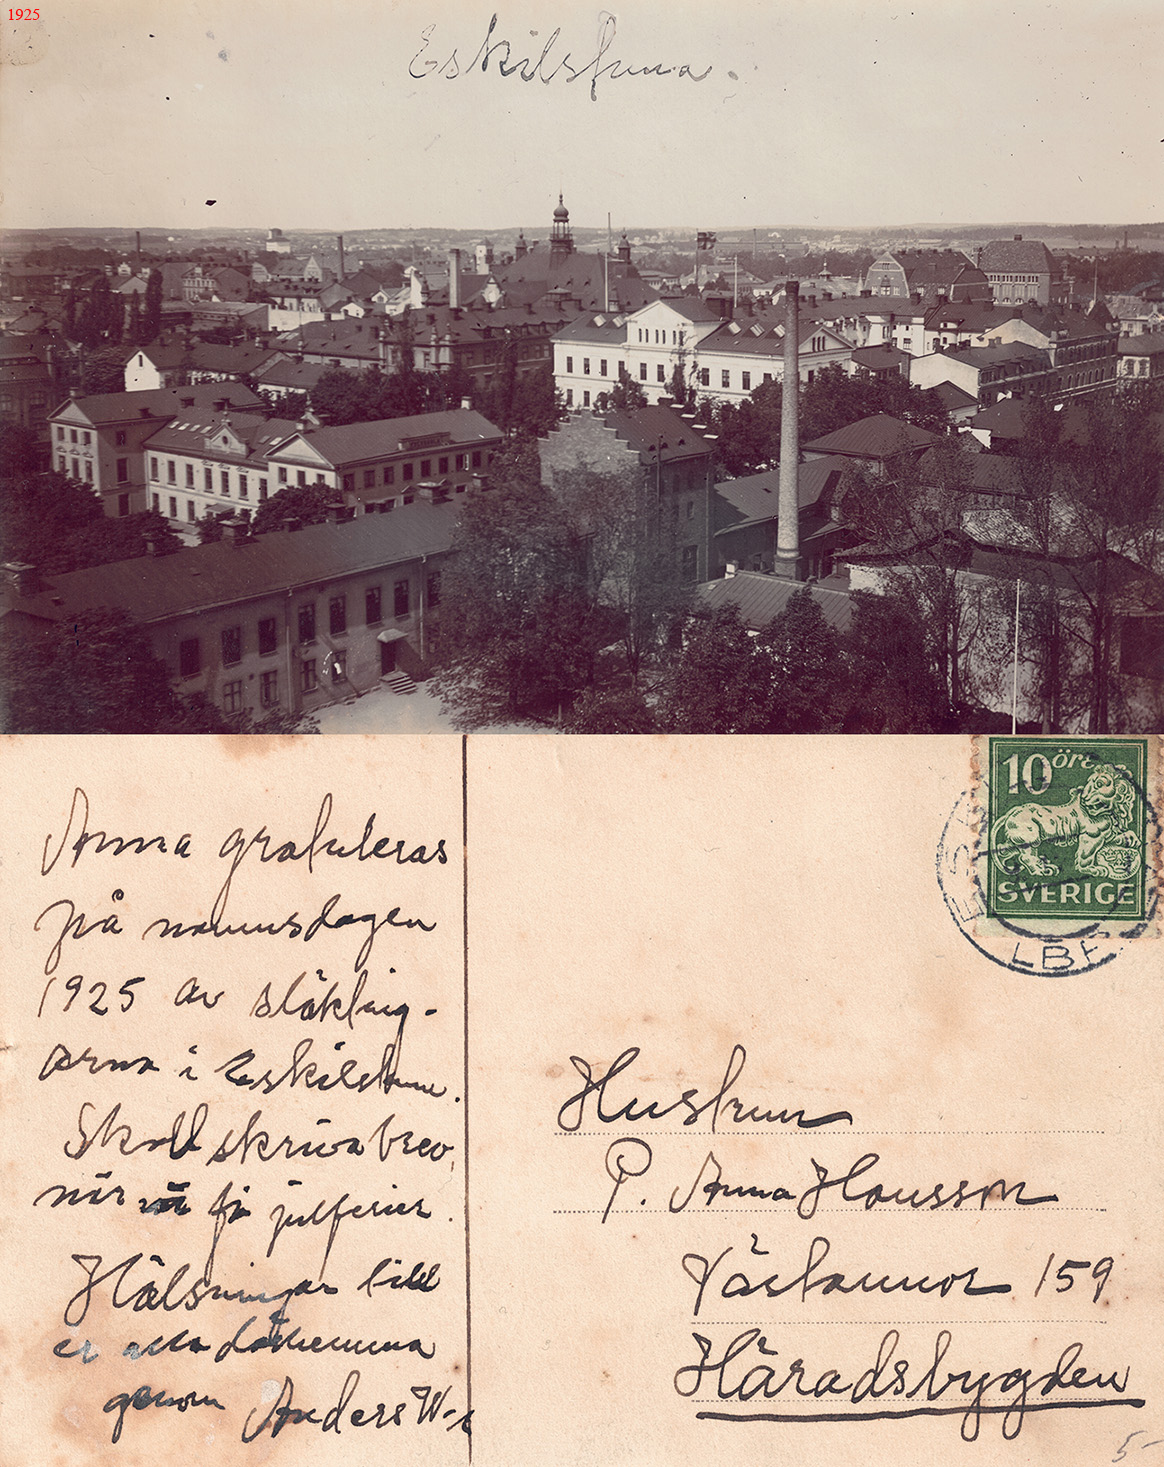 1925
Eskilstuna.
10 öre
SVERIGE
Anna gratuleras
på namnsdagen
1925 av släkting-
arna i Eskilstuna.
Skall skriva brev,
när vi få julferier.
Hälsningar till
er alla därhemma
genom Anders W-s
Hustrun
P. Anna Hansson
Västannor 159
Häradsbygden
5-